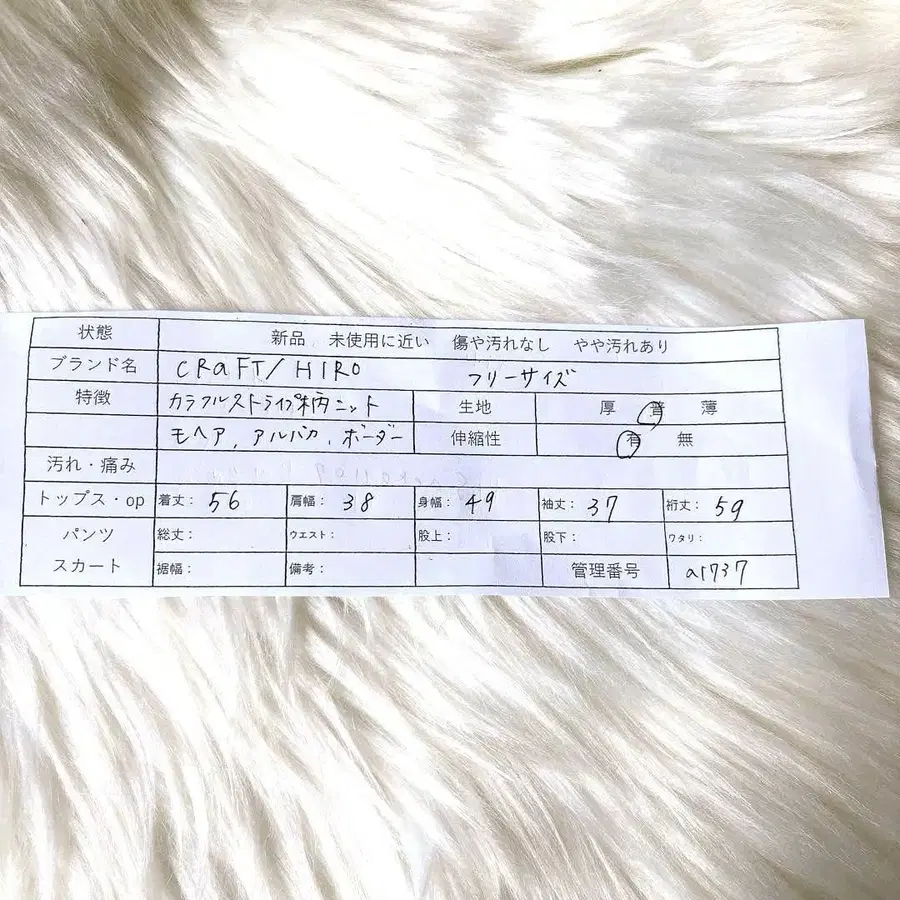 状態 新品 未使用に近い 傷や汚れなし やや汚れあり
ブランド名 CRAFT/HIRO フリーサイズ
特徴 カラフルストライプ柄ニット 生地 厚 普 薄
モヘア、アルパカ、ボーダー 伸縮性 有 無
汚れ・痛み
トップス・op 着丈: 56 肩幅: 38 身幅: 49 袖丈: 37 裄丈: 59
パンツ 総丈: ウエスト: 股上: 股下: ワタリ:
スカート 裾幅: 備考: 管理番号 a1737